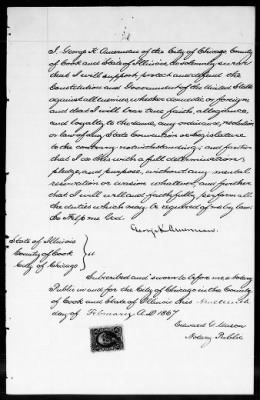 I, George K. Auerman of the City of Chicago, County
of Cook and State of Illinois, do solemnly swear
that I will support, protect and defend the
Constitution and Government of the United States
against all enemies, whether domestic or foreign
and that I will bear true faith, allegiance
and loyalty to the same, any ordinance, resolution
or law of any State Convention or Legislature
to the contrary notwithstanding; and further
that I do this with a full determination,
pledge, and purpose, without any mental
reservation or evasion whatsoever, and further
that I will well and faithfully perform all
the duties which may be required of me by law.
So help me God.
State of Illinois
County of Cook
City of Chicago
Subscribed and sworn to before me a Notary
Public in and for the City of Chicago in the County
of Cook and State of Illinois this
day of February A.D. 1867
Edward G. Mason
Notary Public